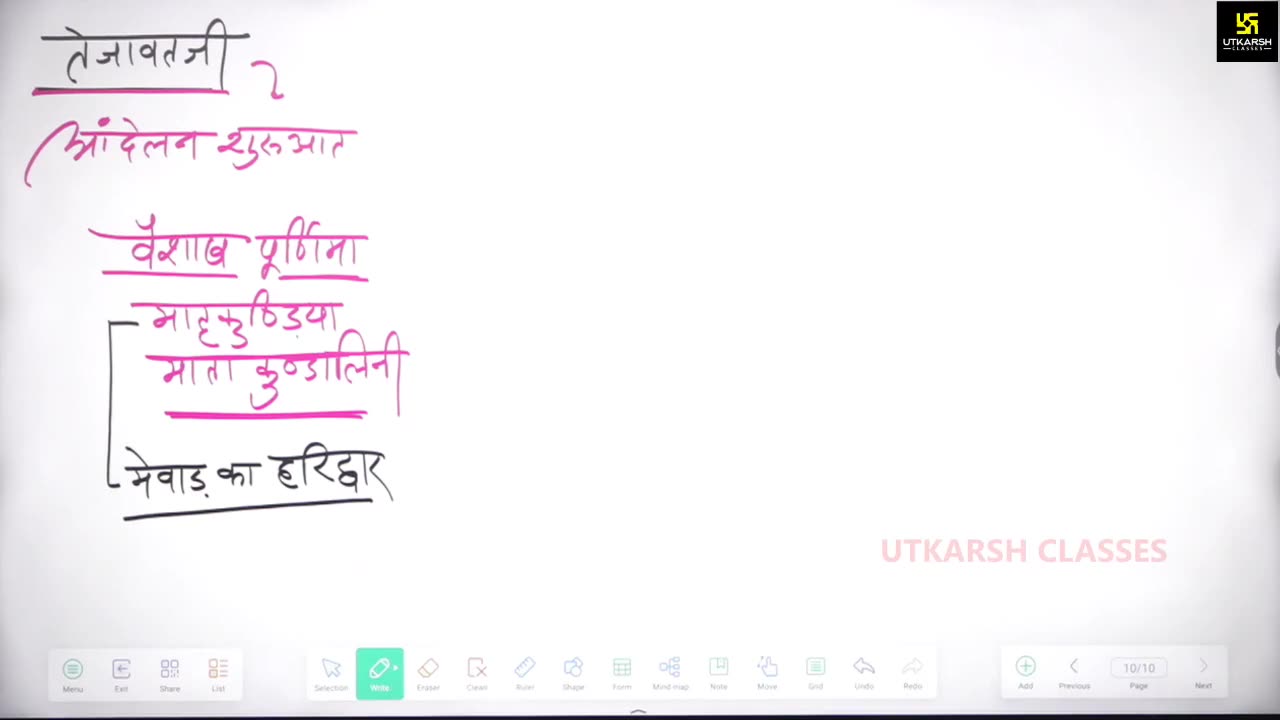 तेजावतजी
UTKARSH
CLASSES
आंदोलन शुरूआत
वैशाख पूर्णिमा
मातृकुण्डिया
माता कुण्डालिनी
मेवाड़ का हरिद्वार
UTKARSH CLASSES
Menu Exit Share List Selection Write Eraser Clean Ruler Shape Form Mind map Note Move Grid Undo Redo Add Previous 10/10 Page Next